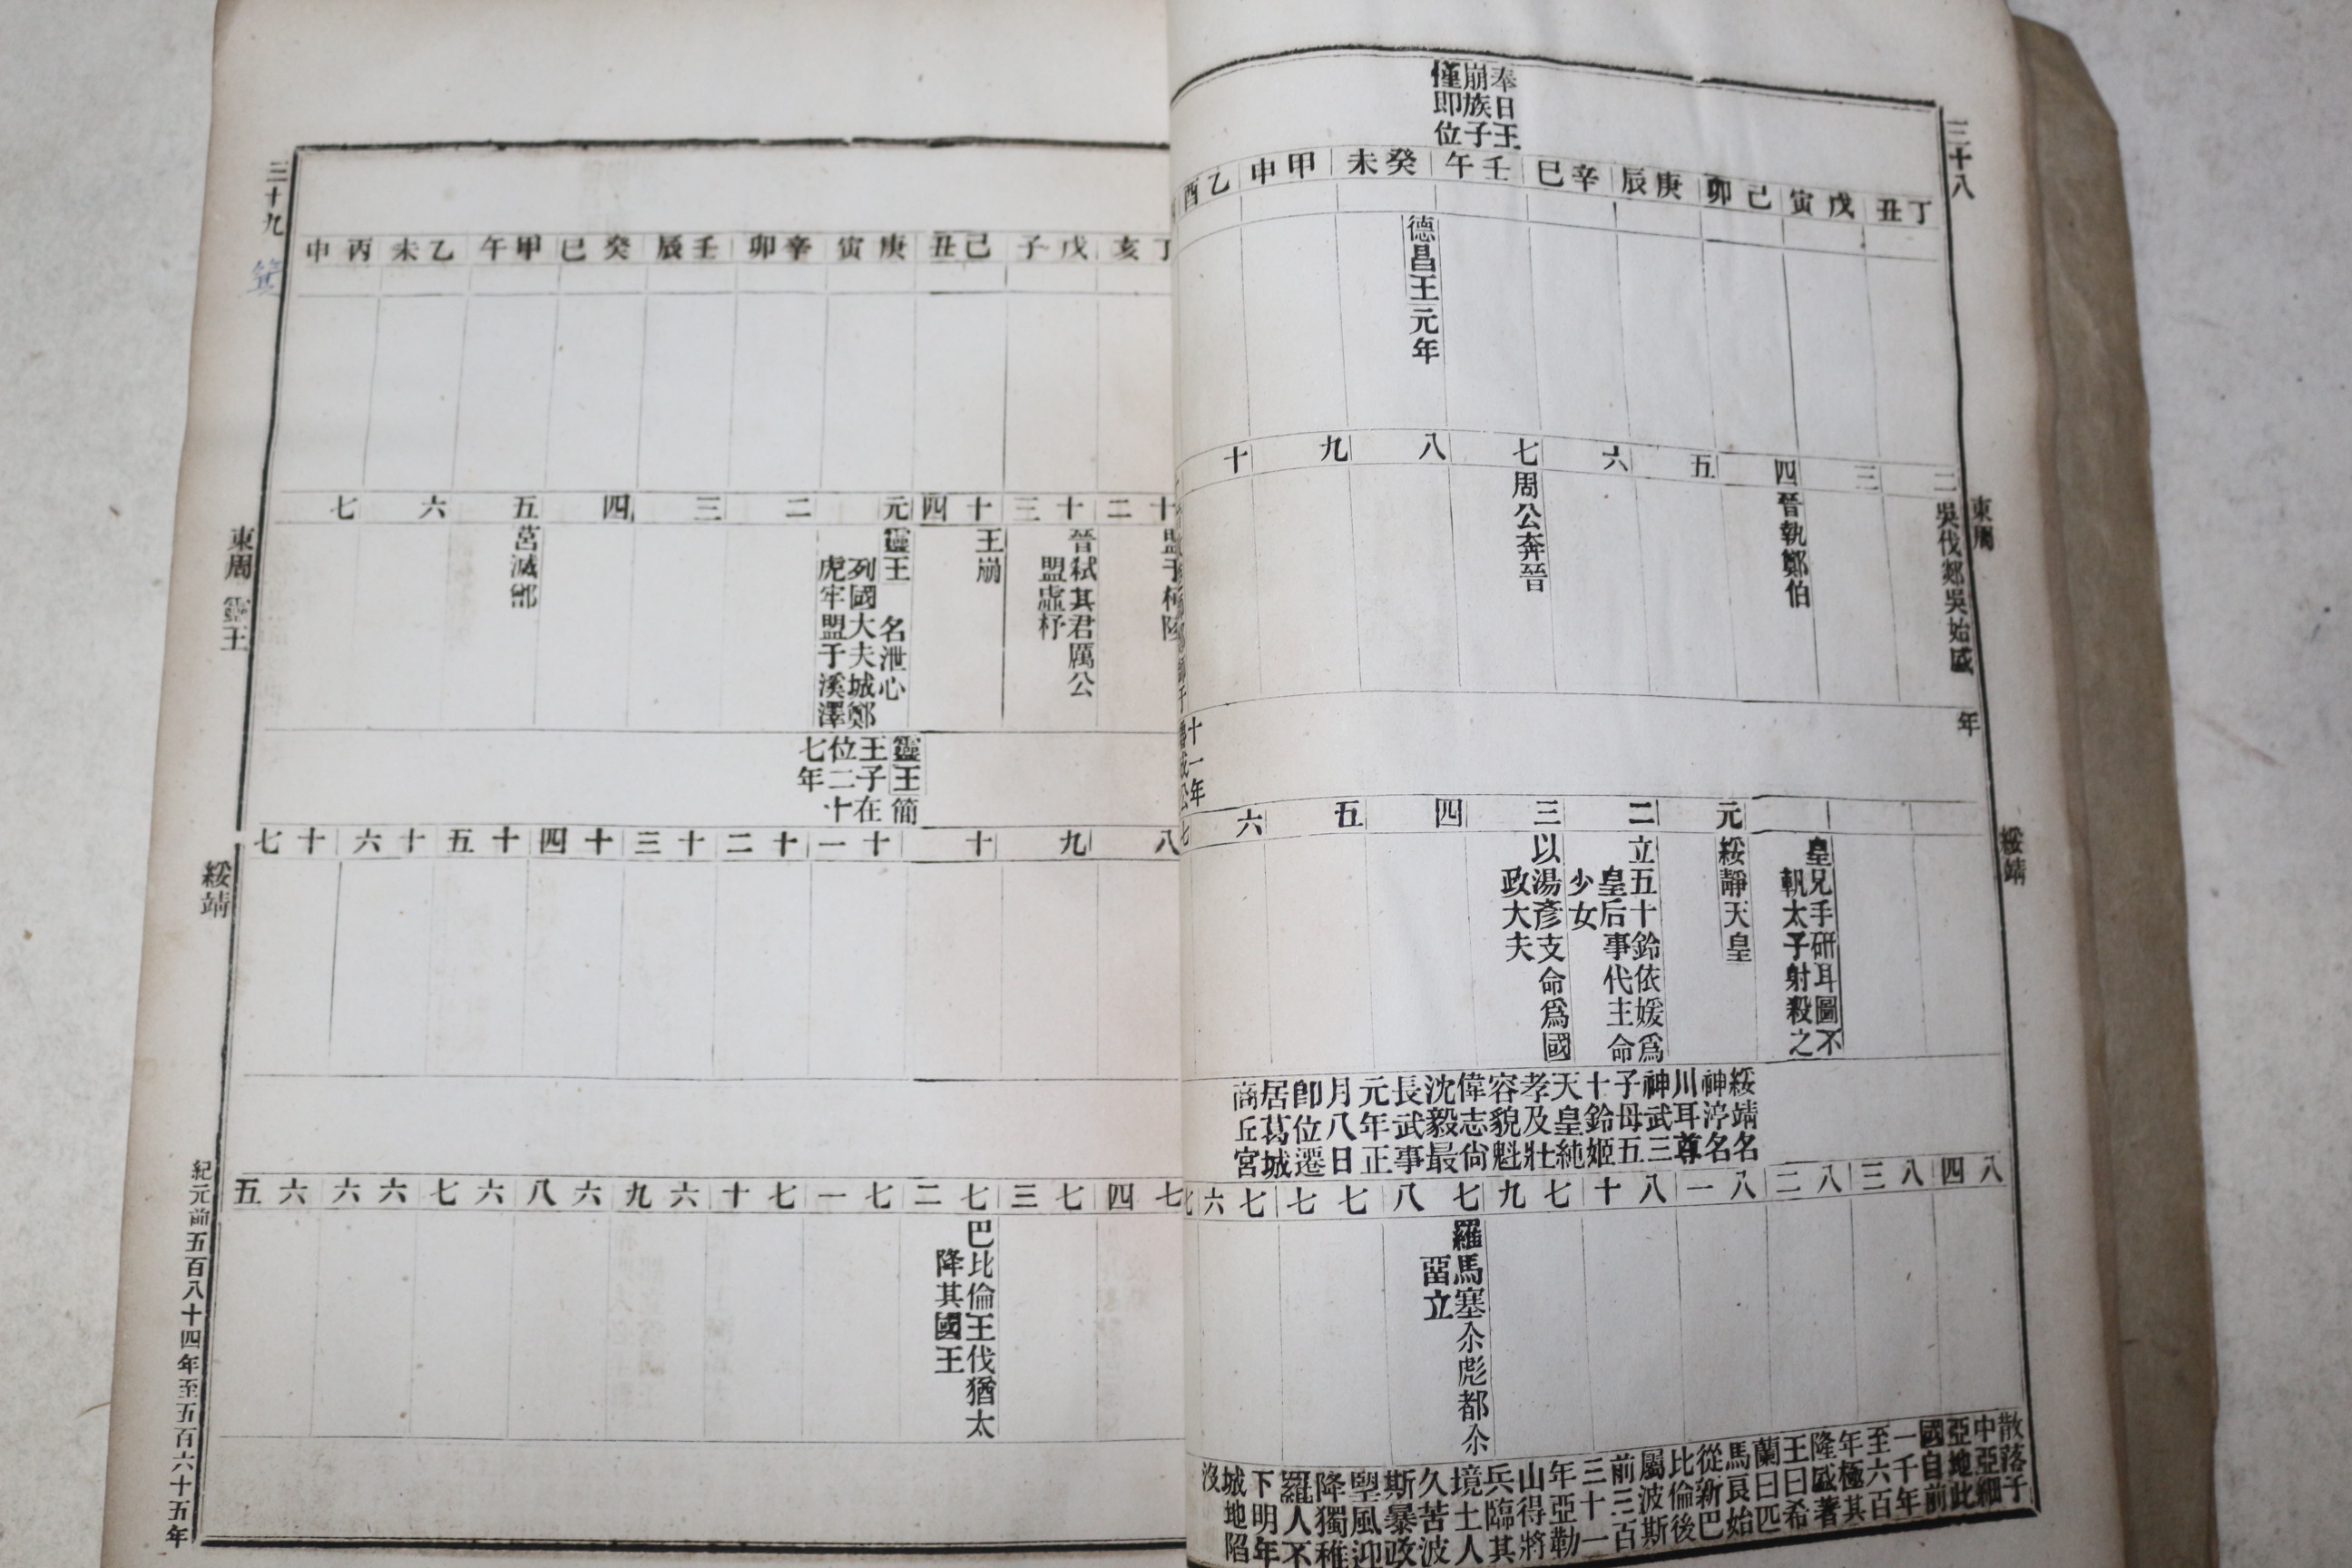 三十八
東周
綏靖
奉日王
崩族子
僅即位
丁丑
戊寅
己卯
庚辰
辛巳
壬午
癸未
甲申
乙酉
德昌王元年
二
吳伐郯吳始盛
三
四
晉執鄭伯
五
六
七
周公奔晉
八
九
十
年
十一年
皇兄手硏耳圖不
軓太子射殺之
元
綏靜天皇
二
立五十鈴依媛爲
皇后事代主命
少女
三
以湯彥支命爲國
政大夫
四
五
六
七
綏靖名
神渟名
川耳尊
神武三
子母五
十鈴姬
天皇純
孝及壯
容貌魁
偉志尙
沈毅最
長武事
元年正
月八日
卽位遷
居葛城
商丘宮
八四
八三
八二
八一
八十
七九
七八
羅馬塞尒彪都尒
畱立
七七
七六
散落子
中亞細
亞地此
國自前
一千年
至六百
年極其
隆盛著
王曰希
蘭曰匹
馬良始
從新巴
比倫後
屬波斯
前三百
三十一
年亞勒
山得將
兵臨其
境土人
久苦波
斯暴政
朢風迎
降獨稚
羅人不
下明年
城地陷
沒
丁亥
戊子
己丑
庚寅
辛卯
壬辰
癸巳
甲午
乙未
丙申
十二
十三
晉弒其君厲公
盟虛朾
十四
王崩
元
靈王 名泄心
列國大夫城鄭
虎牢盟于溪澤
二
三
四
五
莒滅鄫
六
七
靈王簡
王子在
位二十
七年
八
九
十
十一
十二
十三
十四
十五
十六
十七
七四
七三
七二
巴比倫王伐猶太
降其國王
七一
七十
六九
六八
六七
六六
六五
三十九
東周 靈王
綏靖
紀元前五百八十四年至五百六十五年